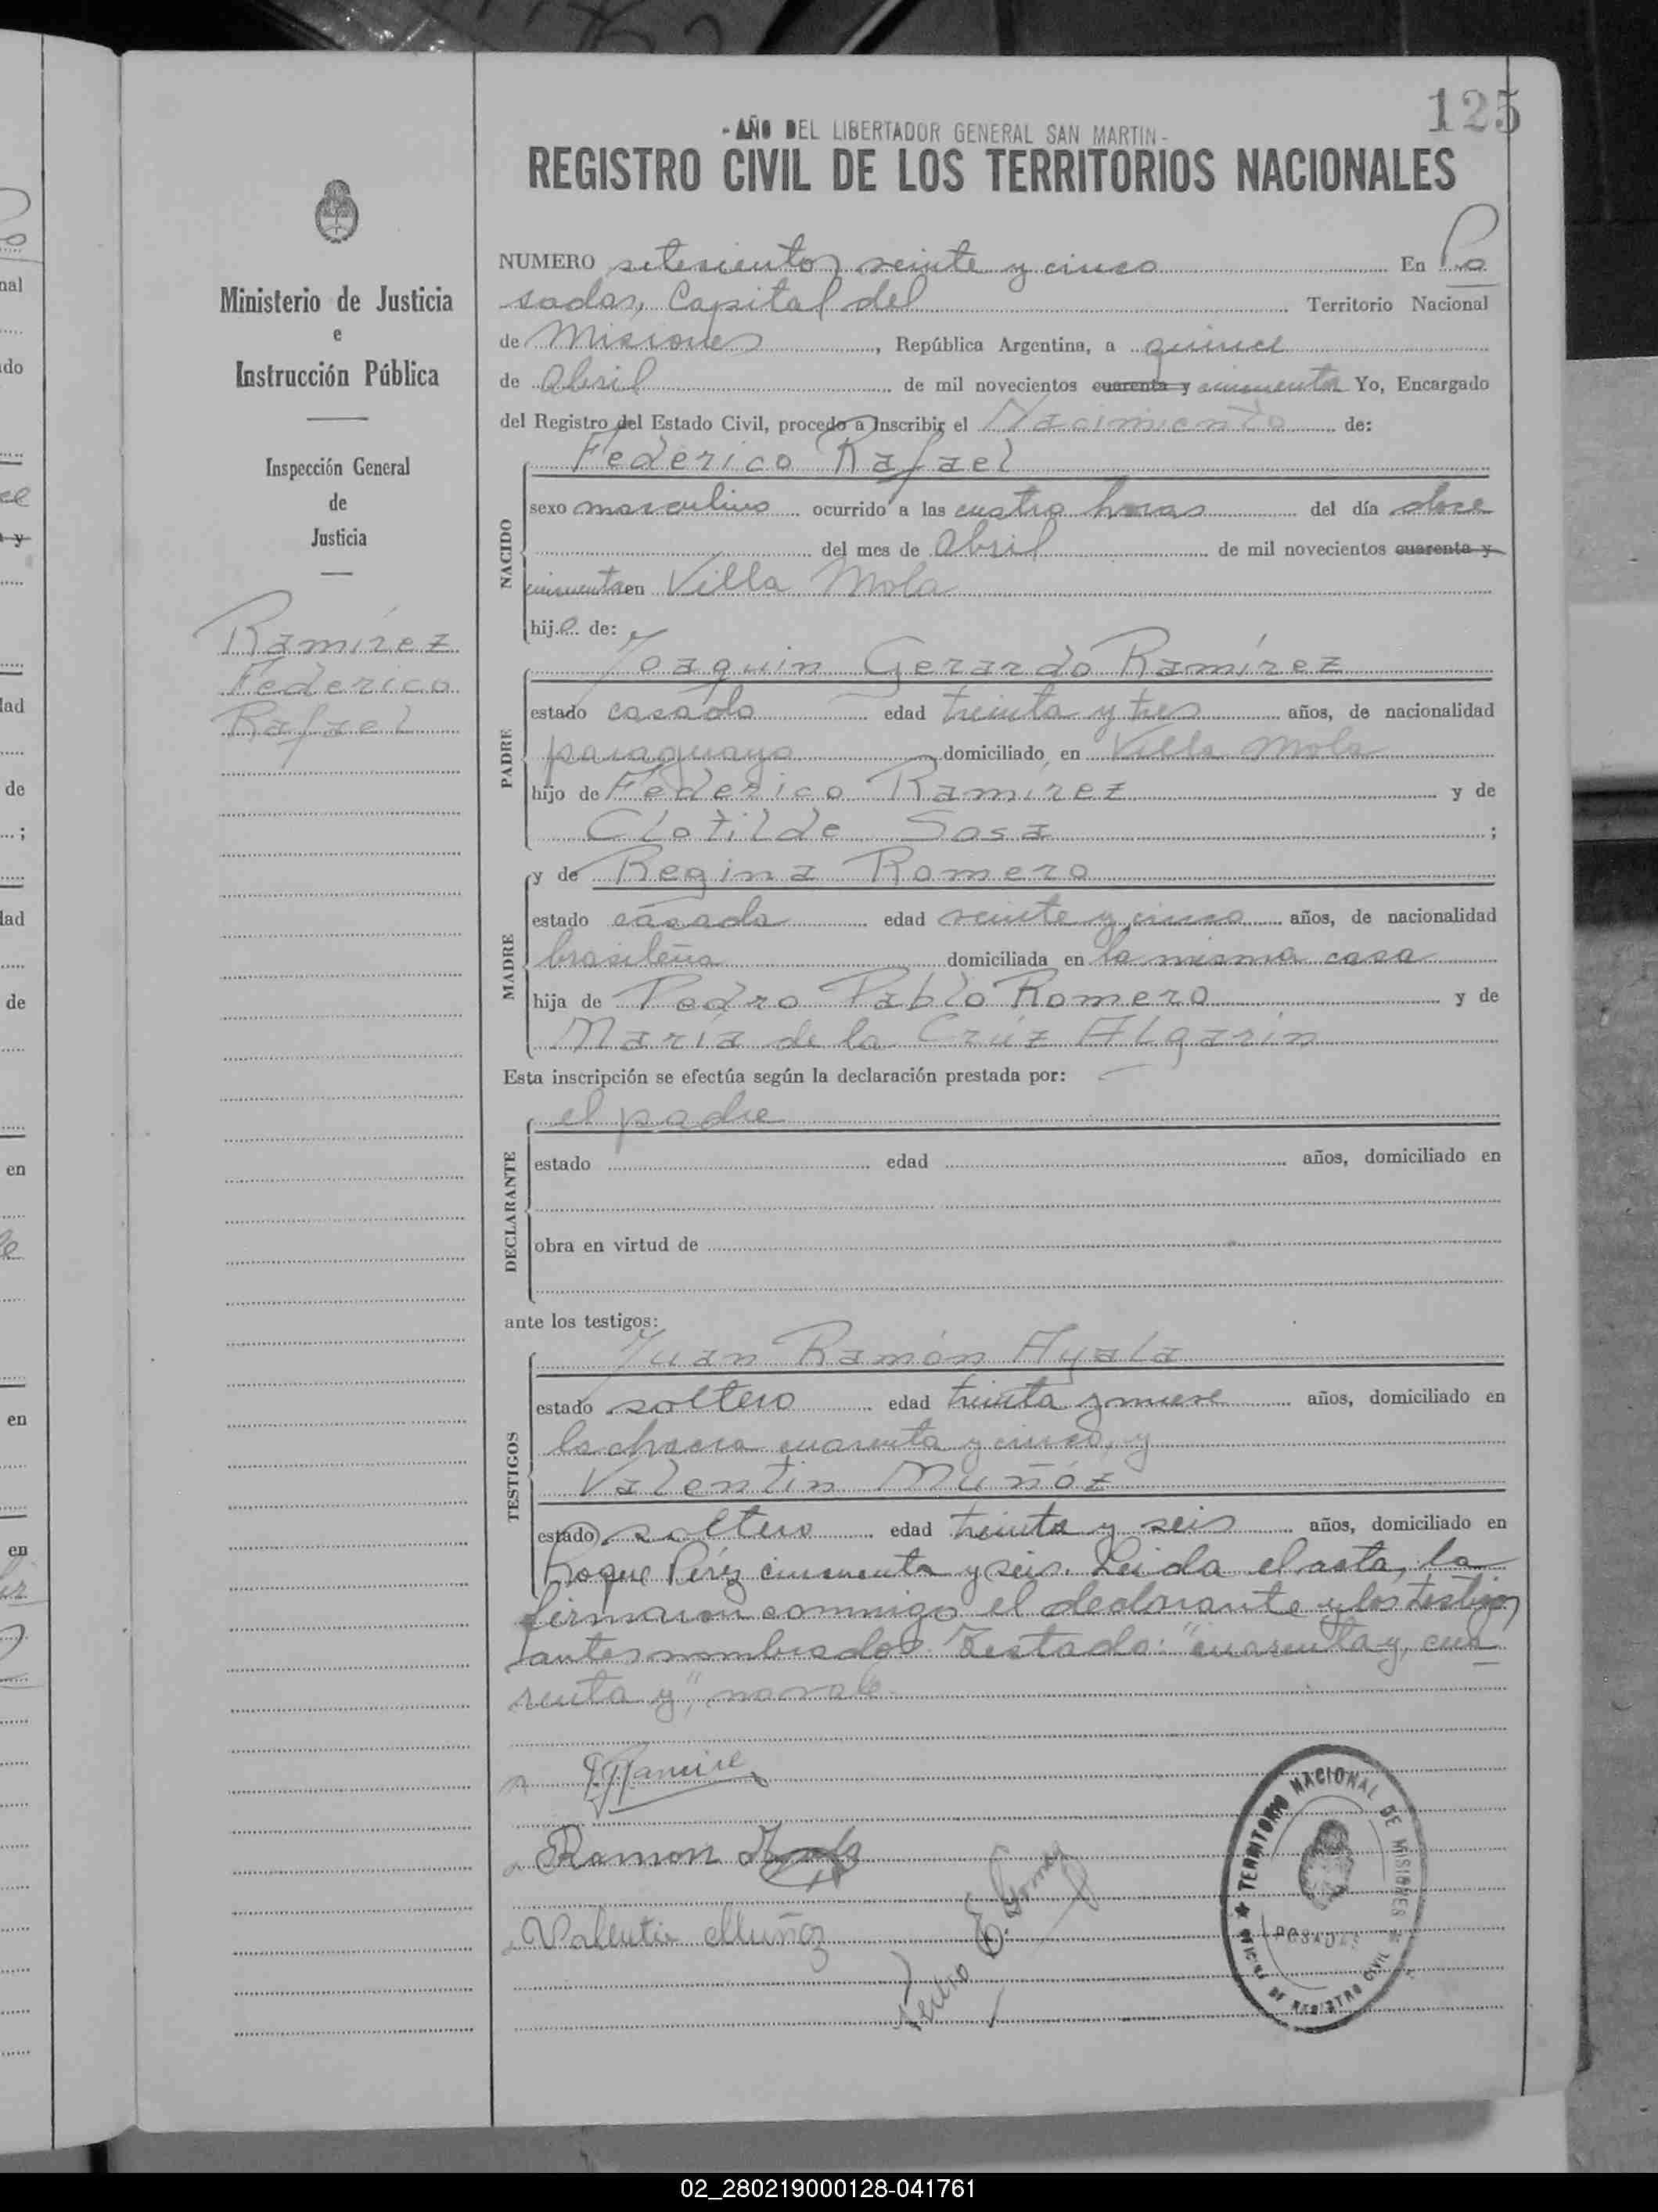 125
- AÑO DEL LIBERTADOR GENERAL SAN MARTIN -
REGISTRO CIVIL DE LOS TERRITORIOS NACIONALES
Ministerio de Justicia
e
Instrucción Pública
Inspección General
de
Justicia
Ramírez
Federico
Rafael
NUMERO setesientos veinte y cinco En Po
sadas, Capital del Territorio Nacional
de Misiones, República Argentina, a quince
de Abril de mil novecientos cuarenta y cincuenta Yo, Encargado
del Registro del Estado Civil, procedo a Inscribir el Nacimiento de:
Federico Rafael
NACIDO
sexo masculino ocurrido a las cuatro horas del día doce
del mes de Abril de mil novecientos cuarenta y
cincuenta en Villa Mola
hijo de:
Joaquin Gerardo Ramírez
PADRE
estado casado edad treinta y tres años, de nacionalidad
paraguaya domiciliado en Villa Mola
hijo de Federico Ramírez y de
Clotilde Sosa ;
y de Regina Romero
MADRE
estado casada edad veinte y cinco años, de nacionalidad
brasileña domiciliada en la misma casa
hija de Pedro Pablo Romero y de
María de la Crúz Algarin
Esta inscripción se efectúa según la declaración prestada por:
el padre
DECLARANTE
estado edad años, domiciliado en
obra en virtud de
ante los testigos:
Juan Ramón Ayala
TESTIGOS
estado soltero edad treinta y nueve años, domiciliado en
la chacra cuarenta y cinco, y
Valentin Muñóz
estado soltero edad treinta y seis años, domiciliado en
Roque Pérez cincuenta y seis. Leida el acta, la
firmaron conmigo el declarante y los testigos
antes nombrados. Testado: "cuarenta y, cua
renta y", no vale.
Ramire
Ramon
Valentin Muñoz
E. Gomez
TERRITORIO NACIONAL DE MISIONES
POSADAS
OFICINA DE REGISTRO CIVIL
02_280219000128-041761